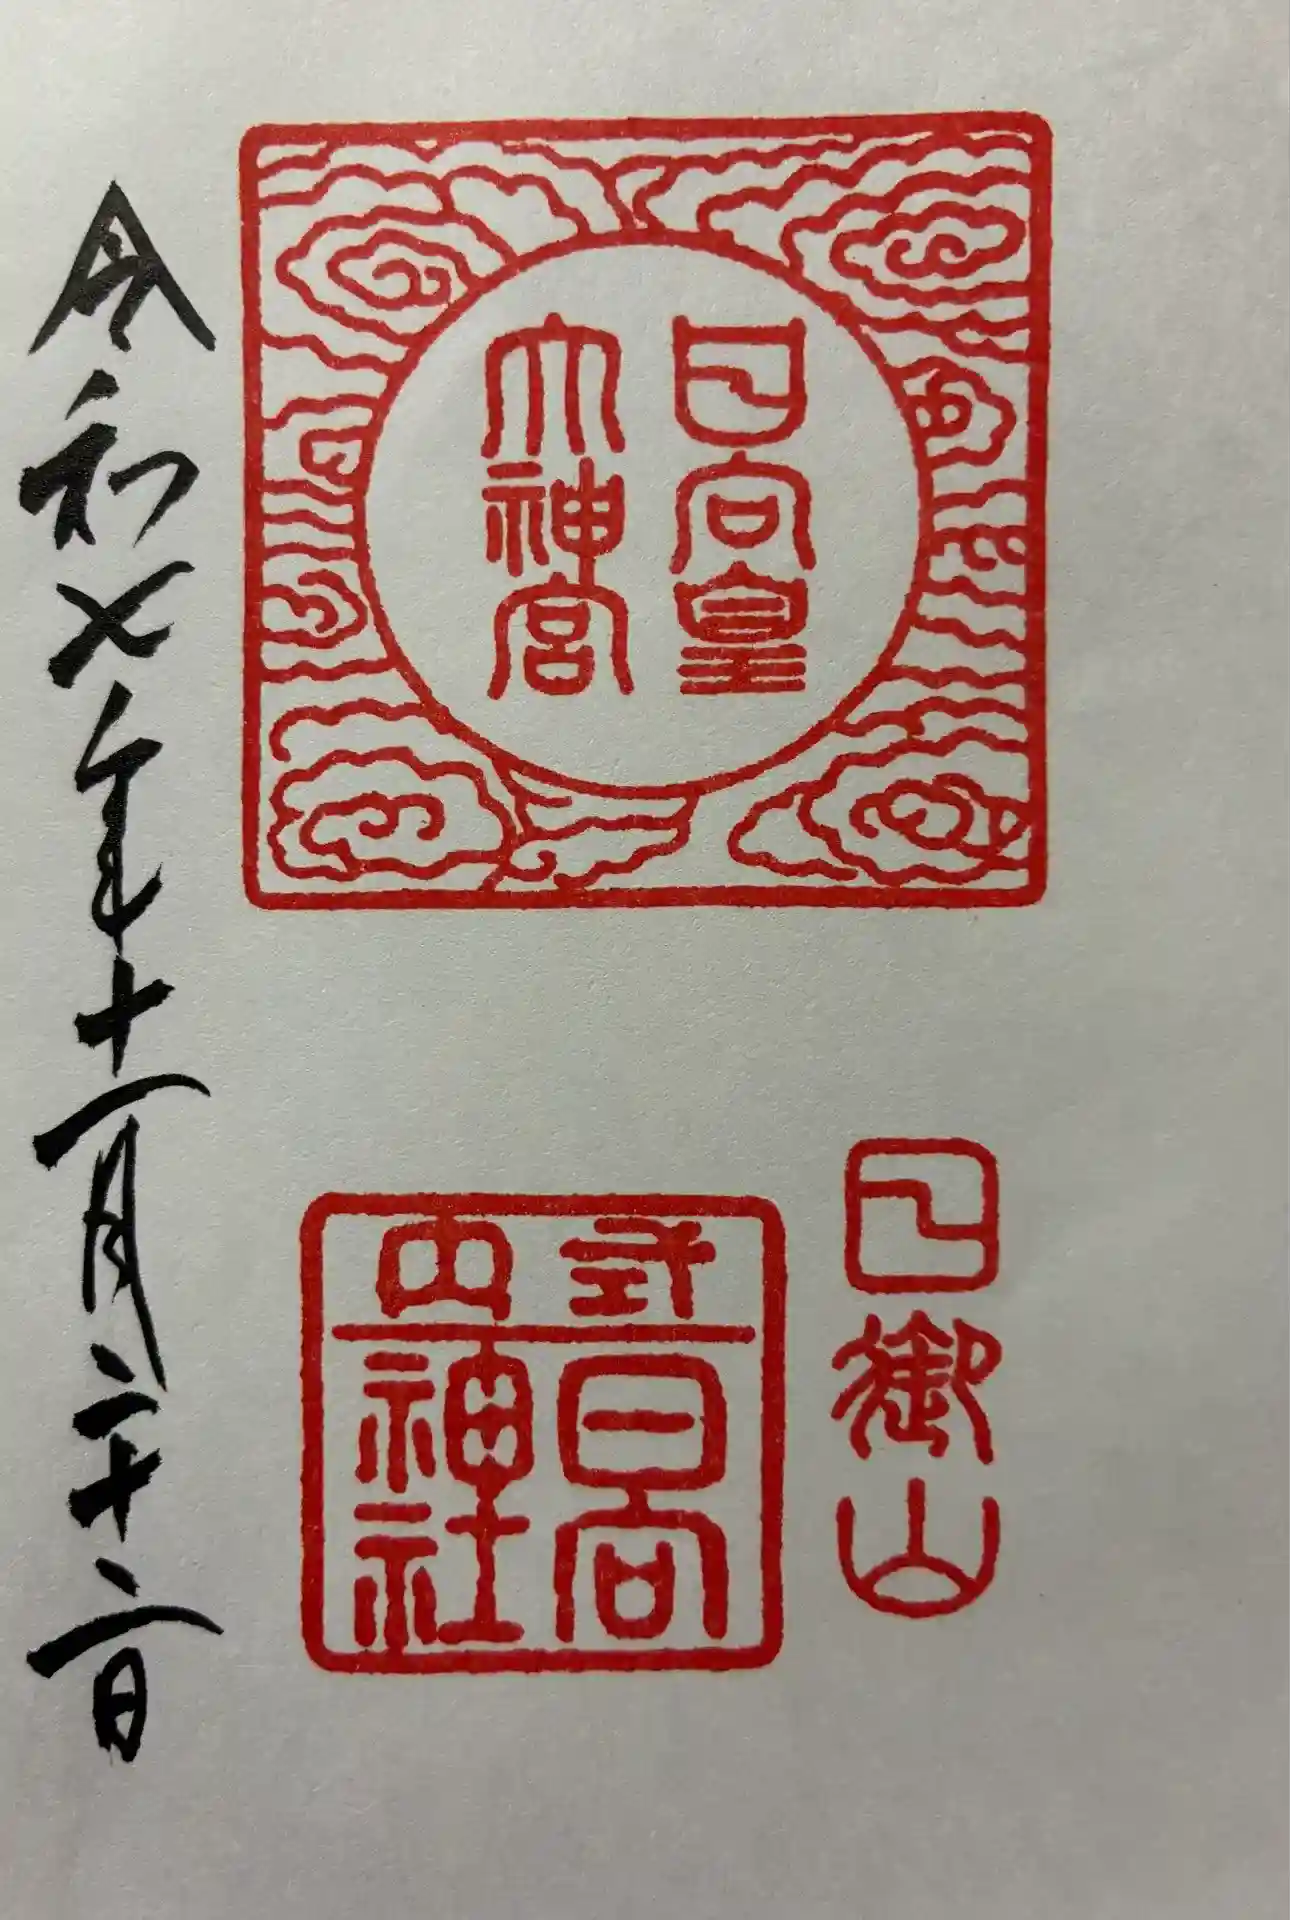 日向皇
大神宮
日御山
式内
日向
神社
令和七年十一月二十二日